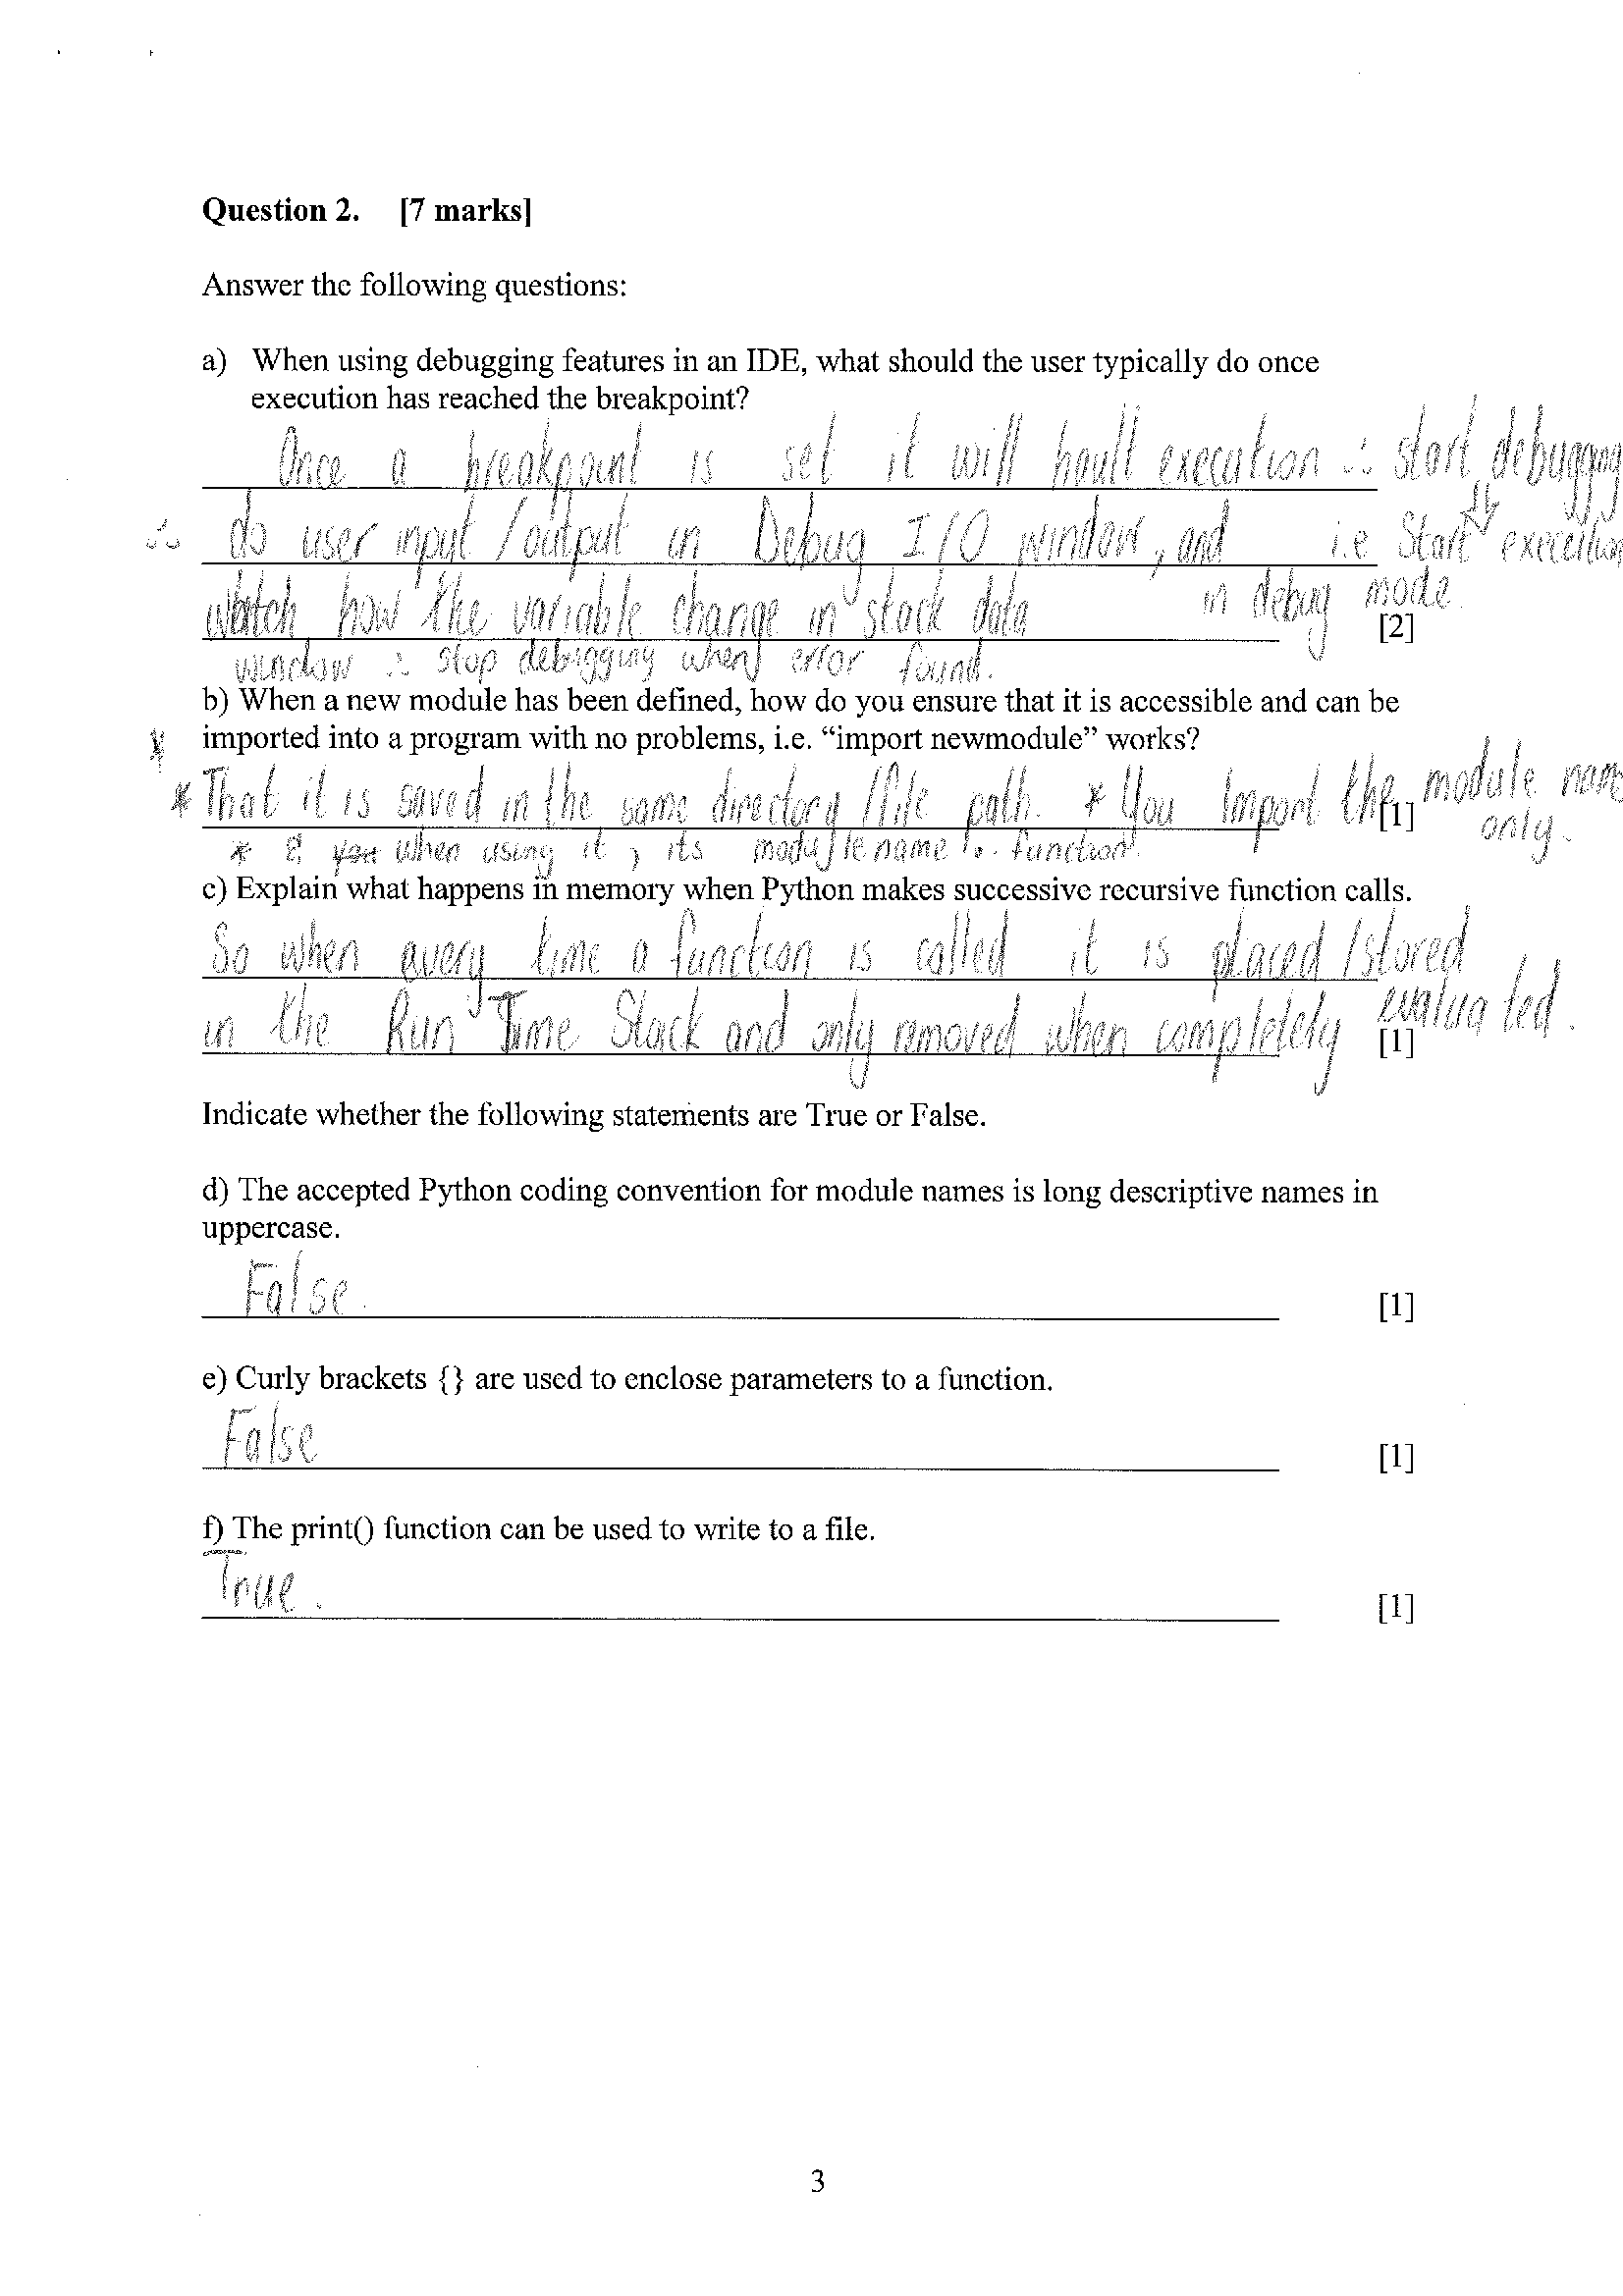 Question 2. [7 marks]
Answer the following questions:
a) When using debugging features in an IDE, what should the user typically do once
execution has reached the breakpoint?
Once a breakpoint is set it will hault execution ∴ start debugging
∴ do user input / output in Debug I/O window, and i.e Start execution
watch how the variable change in stack data in debug mode.
[2]
window ∴ stop debugging when error found.
b) When a new module has been defined, how do you ensure that it is accessible and can be
* imported into a program with no problems, i.e. “import newmodule” works?
* That it is saved in the same directory / file path. * You Import the module name
[1] only.
* & when using it, its modulename . function.
c) Explain what happens in memory when Python makes successive recursive function calls.
So when every time a function is called it is placed / stored
in the Run Time Stack and only removed when completely evaluated.
[1]
Indicate whether the following statements are True or False.
d) The accepted Python coding convention for module names is long descriptive names in
uppercase.
False.
[1]
e) Curly brackets {} are used to enclose parameters to a function.
False
[1]
f) The print() function can be used to write to a file.
True.
[1]
3